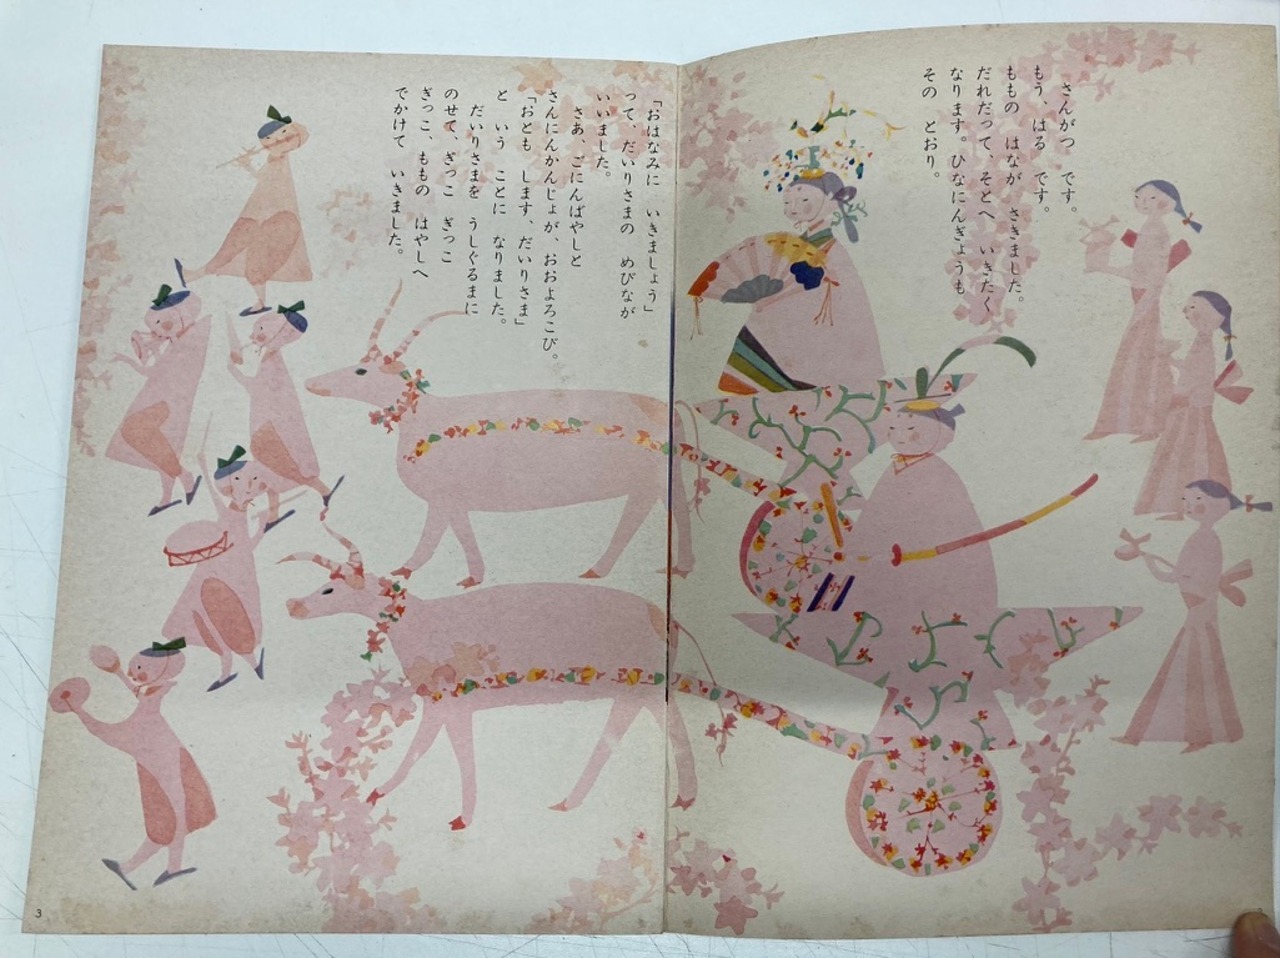 さんがつ です。
もう、はる です。
ももの はなが さきました。
だれだって、そとへ いきたく
なります。ひなにんぎょうも
その とおり。
「おはなみに いきましょう」
って、だいりさまの めびなが
いいました。
さあ、ごにんばやしと
さんにんかんじょが、おおよろこび。
「おとも します、だいりさま」
と いう ことに なりました。
だいりさまを うしぐるまに
のせて、ぎっこ ぎっこ
ぎっこ、ももの はやしへ
でかけて いきました。
3